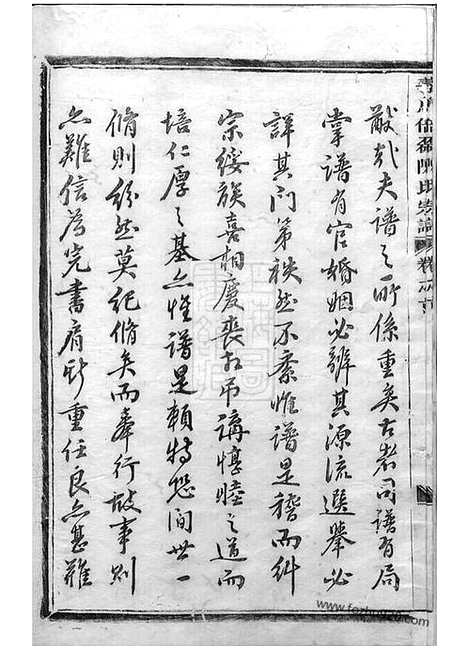 卷之首
猷哉夫譜之所係重矣古者司譜有局
掌譜有官婚姻必辨其源流選舉必
詳其門第秩然不紊惟譜是稽而糾
宗綏族喜相慶喪相吊講惇睦之道而
培仁厚之基亦惟譜是賴特恐間世一
脩則紛然莫紀脩矣而奉行故事則
亦難信為完書肩斯重任良亦甚難